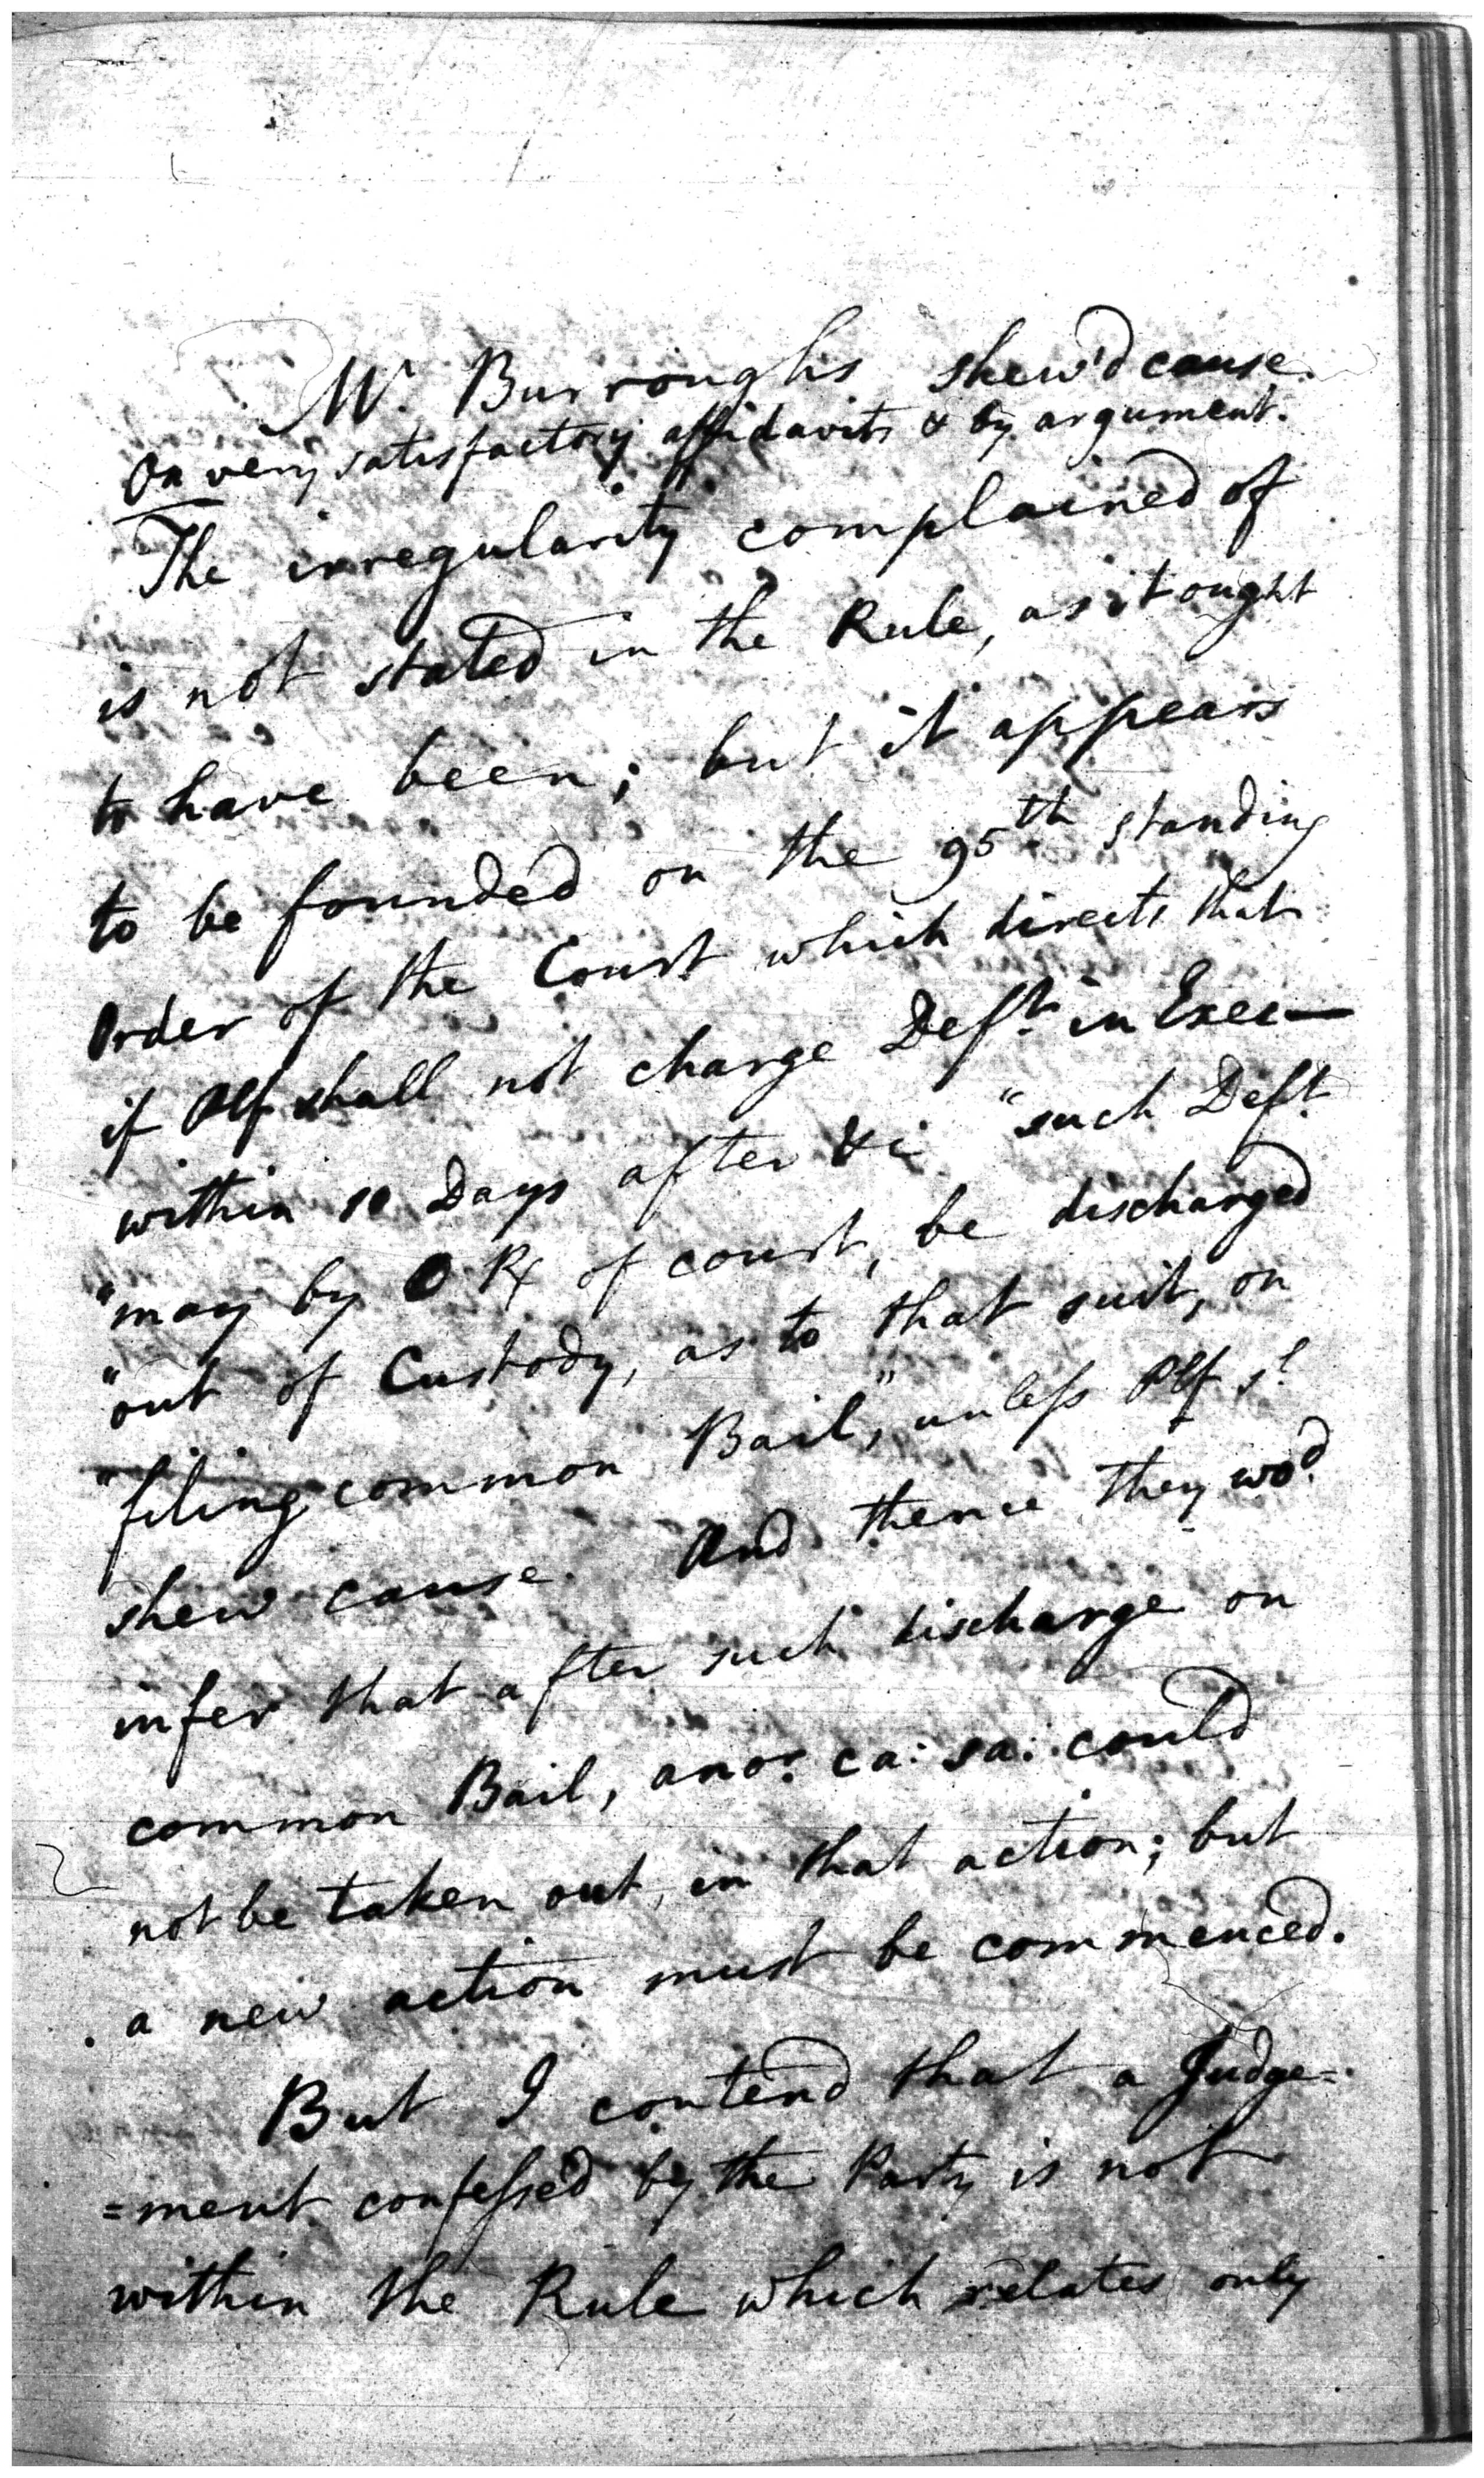 Mr. Burroughs shew'd cause.
On very satisfactory affidavits & by argument.
The irregularity complained of
is not stated in the Rule, as it ought
to have been; but it appears
to be founded on the 95th standing
Order of the Court which directs that
if Plf shall not charge Deft. in Exec—
within 10 Days after &c "such Deft.
"may by O Rx of court, be discharged
"out of Custody, as to that suit, on
"filing common Bail", unless Plf sd.
shew cause. And thence they wod.
infer that after such discharge on
common Bail, anor. ca: sa: could
not be taken out, in that action; but
a new action must be commenced.
But I contend that a Judge=
=ment confessed by the Party is not
within the Rule which relates only